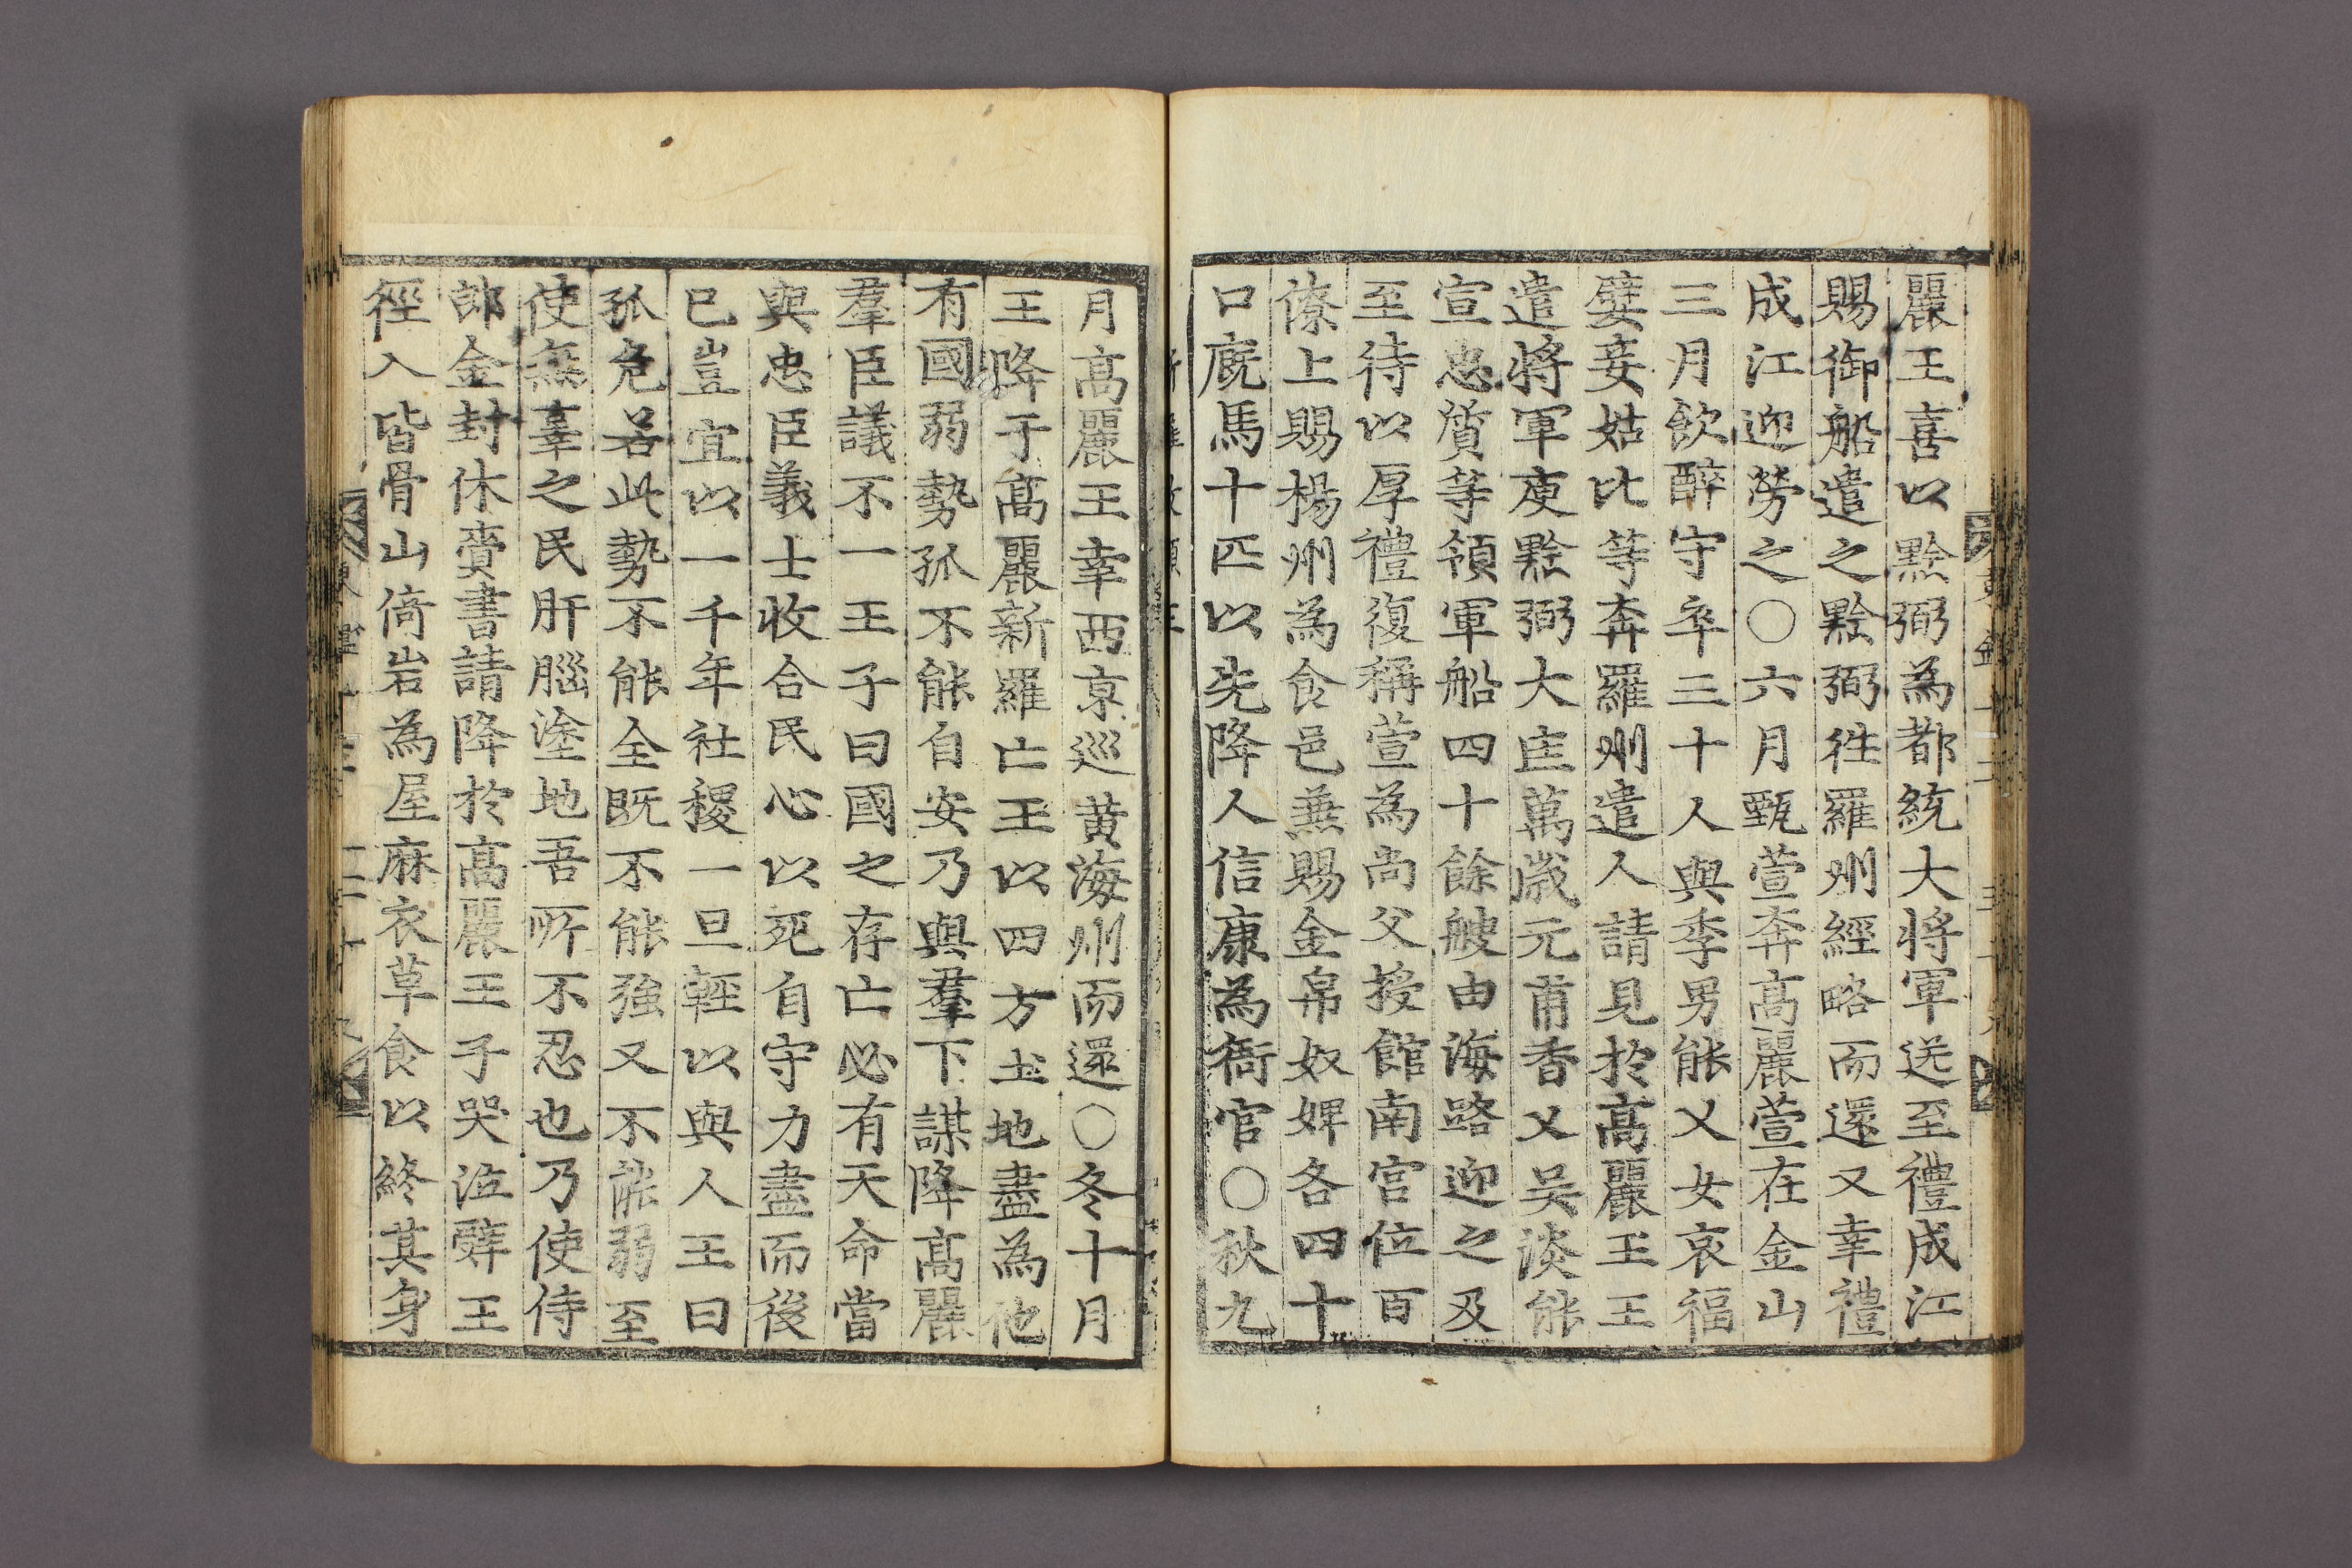 麗王喜以黔弼為都統大將軍送至禮成江
賜御船遣之黔弼徃羅州經略而還又幸禮
成江迎勞之○六月甄萱奔高麗萱在金山
三月飮醉守卒三十人與季男能乂女哀福
嬖妾姑比等奔羅州遣人請見於高麗王王
遣將軍庾黔弼大匡萬歲元甫香乂吴淡能
宣忠質等領軍船四十餘艘由海路迎之及
至待以厚禮復稱萱為尚父授館南宮位百
僚上賜楊州為食邑兼賜金帛奴婢各四十
口廐馬十匹以先降人信康為衙官○秋九
月高麗王幸西京巡黄海州而還○冬十月
王降于高麗新羅亡王以四方土地盡為他
有國弱勢孤不能自安乃與羣下謀降高麗
羣臣議不一王子曰國之存亡必有天命當
與忠臣義士收合民心以死自守力盡而後
已豈宜以一千年社稷一旦輕以與人王曰
孤危若此勢不能全既不能強又不能弱至
使無辜之民肝腦塗地吾所不忍也乃使侍
郎金封休賫書請降於高麗王子哭泣辭王
徑入皆骨山倚岩為屋麻衣草食以終其身